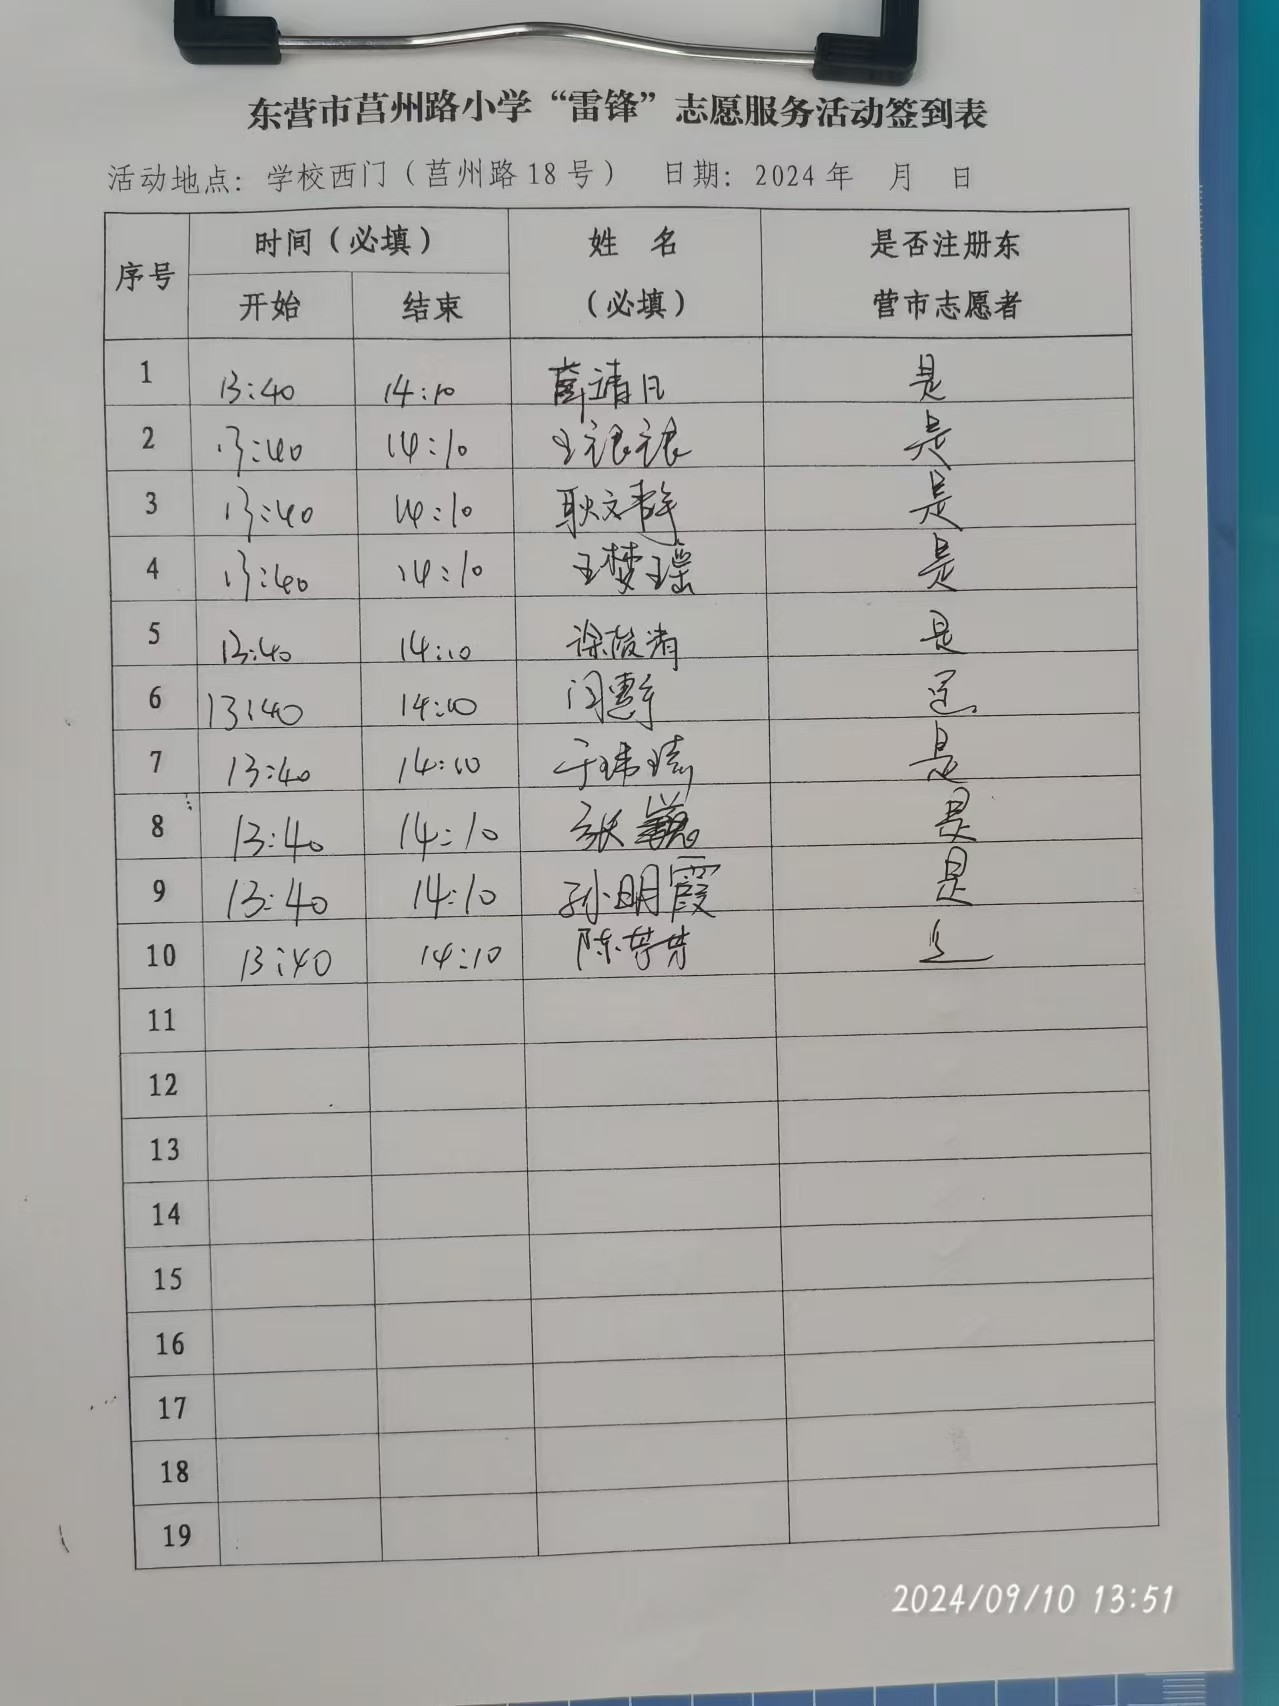 东营市莒州路小学“雷锋”志愿服务活动签到表
活动地点：学校西门（莒州路18号） 日期：2024年 月 日
序号 时间（必填） 姓 名 是否注册东
开始 结束 （必填） 营市志愿者
1 13:40 14:10 薛靖日 是
2 13:40 14:10 王 是
3 13:40 14:10 耿文静 是
4 13:40 14:10 王梦瑶 是
5 13:40 14:10 徐 清 是
6 13:40 14:10 闫 是
7 13:40 14:10 于玮 是
8 13:40 14:10 张巍 是
9 13:40 14:10 孙明霞 是
10 13:40 14:10 陈芳芳 是
11
12
13
14
15
16
17
18
19
2024/09/10 13:51